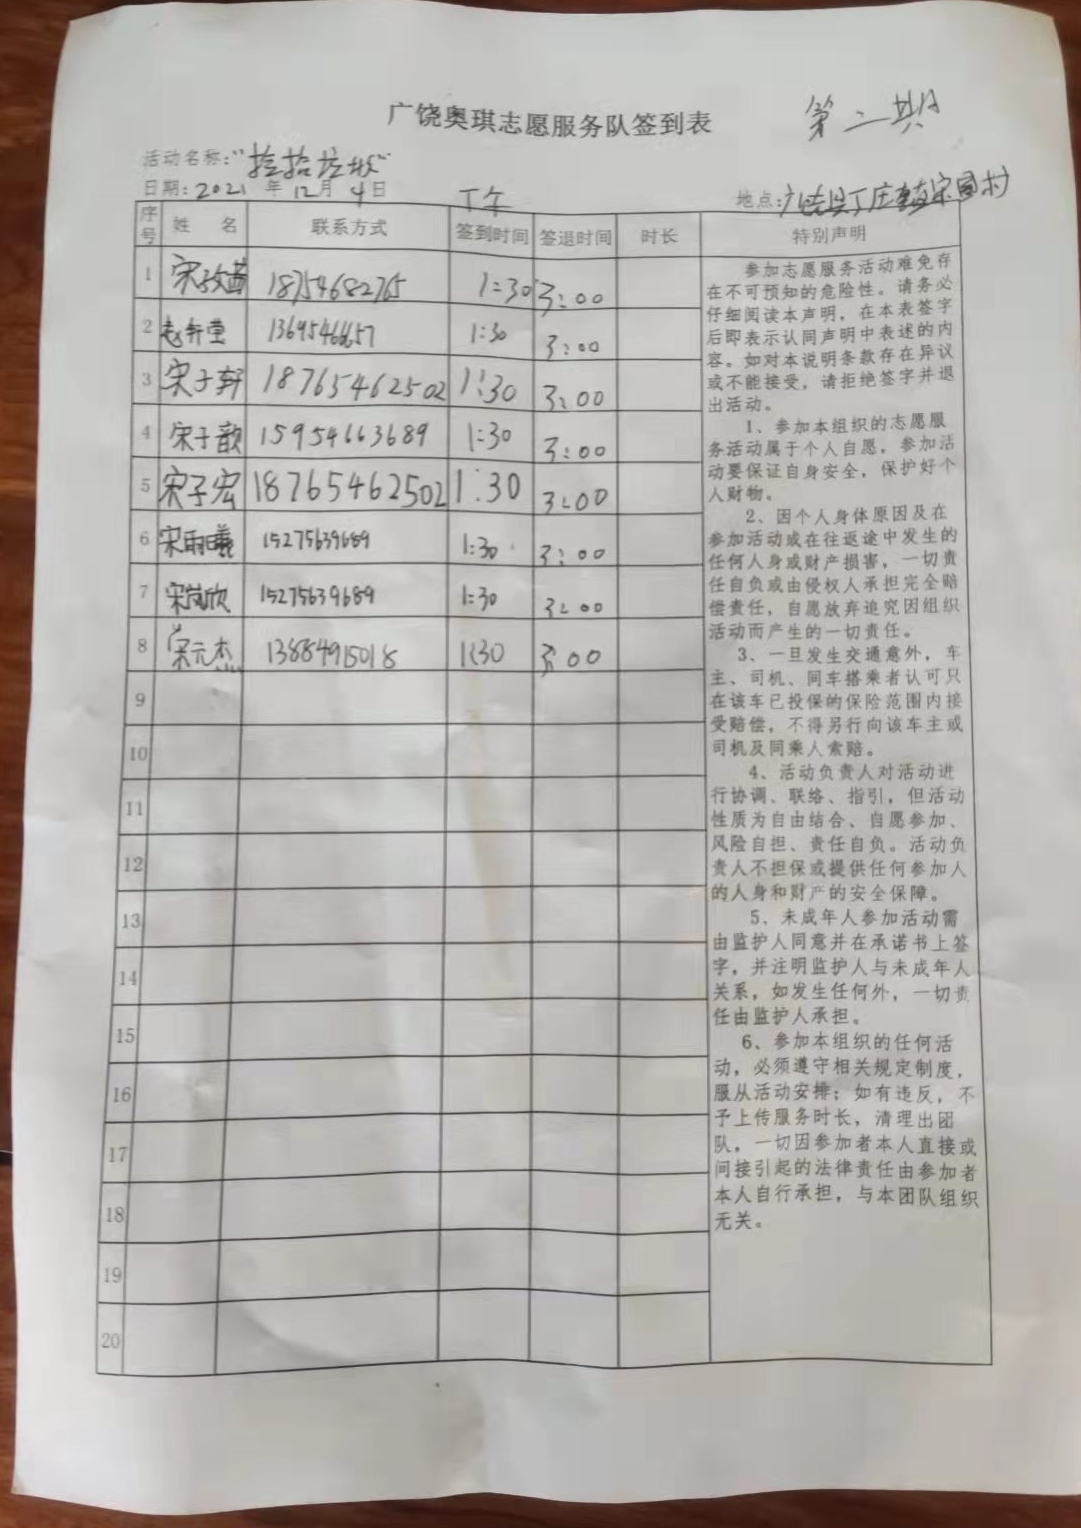 广饶奥琪志愿服务队签到表
第二期
活动名称："捡拾垃圾"
日期：2021年12月4日 下午 地点：广饶县丁庄镇宋园村
序号 姓名 联系方式 签到时间 签退时间 时长 特别声明
1 宋 18754682765 1:30 3:00
2 赵轩莹 13695466657 1:30 3:00
3 宋子轩 18765462502 1:30 3:00
4 宋子歆 15954663689 1:30 3:00
5 宋子宏 18765462502 1:30 3:00
6 宋雨曦 15275639689 1:30 3:00
7 宋岚欣 15275639689 1:30 3:00
8 宋元杰 13884915018 1:30 3:00
9
10
11
12
13
14
15
16
17
18
19
20
参加志愿服务活动难免存
在不可预知的危险性。请务必
仔细阅读本声明，在本表签字
后即表示认同声明中表述的内
容。如对本说明条款存在异议
或不能接受，请拒绝签字并退
出活动。
1、参加本组织的志愿服
务活动属于个人自愿，参加活
动要保证自身安全，保护好个
人财物。
2、因个人身体原因及在
参加活动或在往返途中发生的
任何人身或财产损害，一切责
任自负或由侵权人承担完全赔
偿责任，自愿放弃追究因组织
活动而产生的一切责任。
3、一旦发生交通意外，车
主、司机、同车搭乘者认可只
在该车已投保的保险范围内接
受赔偿，不得另行向该车主或
司机及同乘人索赔。
4、活动负责人对活动进
行协调、联络、指引，但活动
性质为自由结合、自愿参加、
风险自担、责任自负。活动负
责人不担保或提供任何参加人
的人身和财产的安全保障。
5、未成年人参加活动需
由监护人同意并在承诺书上签
字，并注明监护人与未成年人
关系，如发生任何外，一切责
任由监护人承担。
6、参加本组织的任何活
动，必须遵守相关规定制度，
服从活动安排；如有违反，不
予上传服务时长，清理出团
队，一切因参加者本人直接或
间接引起的法律责任由参加者
本人自行承担，与本团队组织
无关。